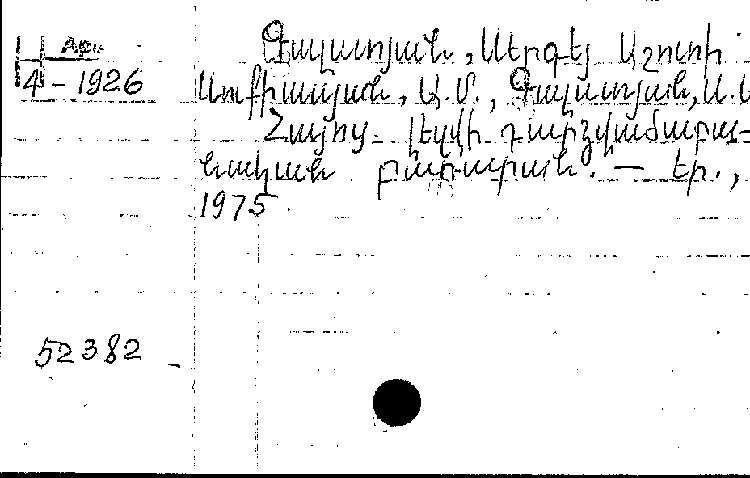 Գալստյան, Սերգեյ Աշոտի
4 - 1926
Սուքիասյան, Ա.Մ., Գալստյան, Ս.Ա
Հայոց լեզվի դարձվածաբա-
նական բառարան. — Եր.,
1975
52382